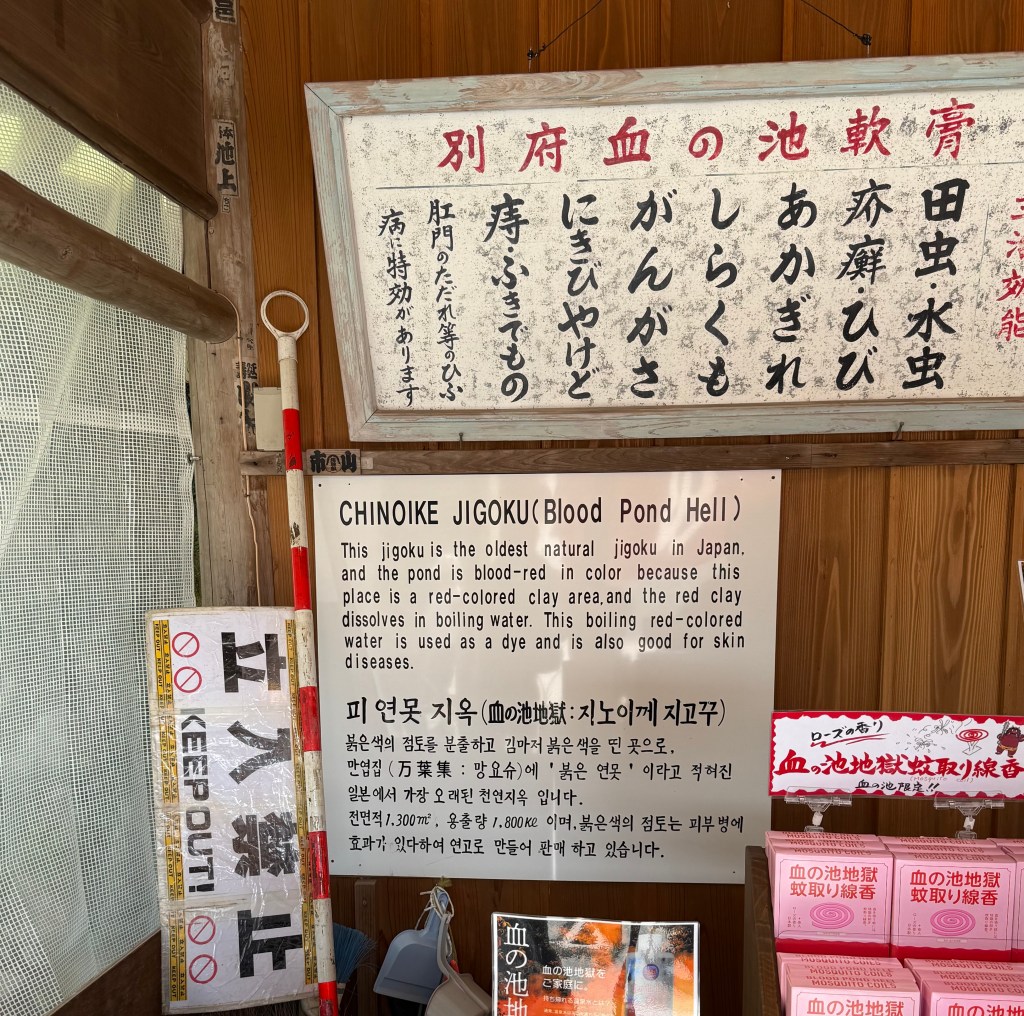 別府血の池軟膏
主治効能
田虫・水虫
疥癬・ひび
あかぎれ
しらくも
がんがさ
にきびやけど
痔・ふきでもの
肛門のただれ等のひふ
病に特効があります
池上
山
CHINOIKE JIGOKU(Blood Pond Hell)
This jigoku is the oldest natural jigoku in Japan,
and the pond is blood-red in color because this
place is a red-colored clay area,and the red clay
dissolves in boiling water. This boiling red-colored
water is used as a dye and is also good for skin
diseases.
피 연못 지옥(血の池地獄:지노이께 지고꾸)
붉은색의 점토를 분출하고 김마저 붉은색을 띤 곳으로,
만엽집(万葉集 : 망요슈)에 '붉은 연못' 이라고 적혀진
일본에서 가장 오래된 천연지옥 입니다.
전면적1.300㎡, 용출량1.800㎘ 이며,붉은색의 점토는 피부병에
효과가 있다하여 연고로 만들어 판매 하고 있습니다.
立入禁止
KEEP OUT!
ローズの香り
血の池地獄蚊取り線香
血の池限定!!
MOSQUITO COILS
血の池地獄
蚊取り線香
MOSQUITO COILS
血の池地獄
蚊取り線香
MOSQUITO COILS
血の池地獄
MOSQUITO COILS
血の池地獄
血の池地
血の池地獄を
ご家庭に。